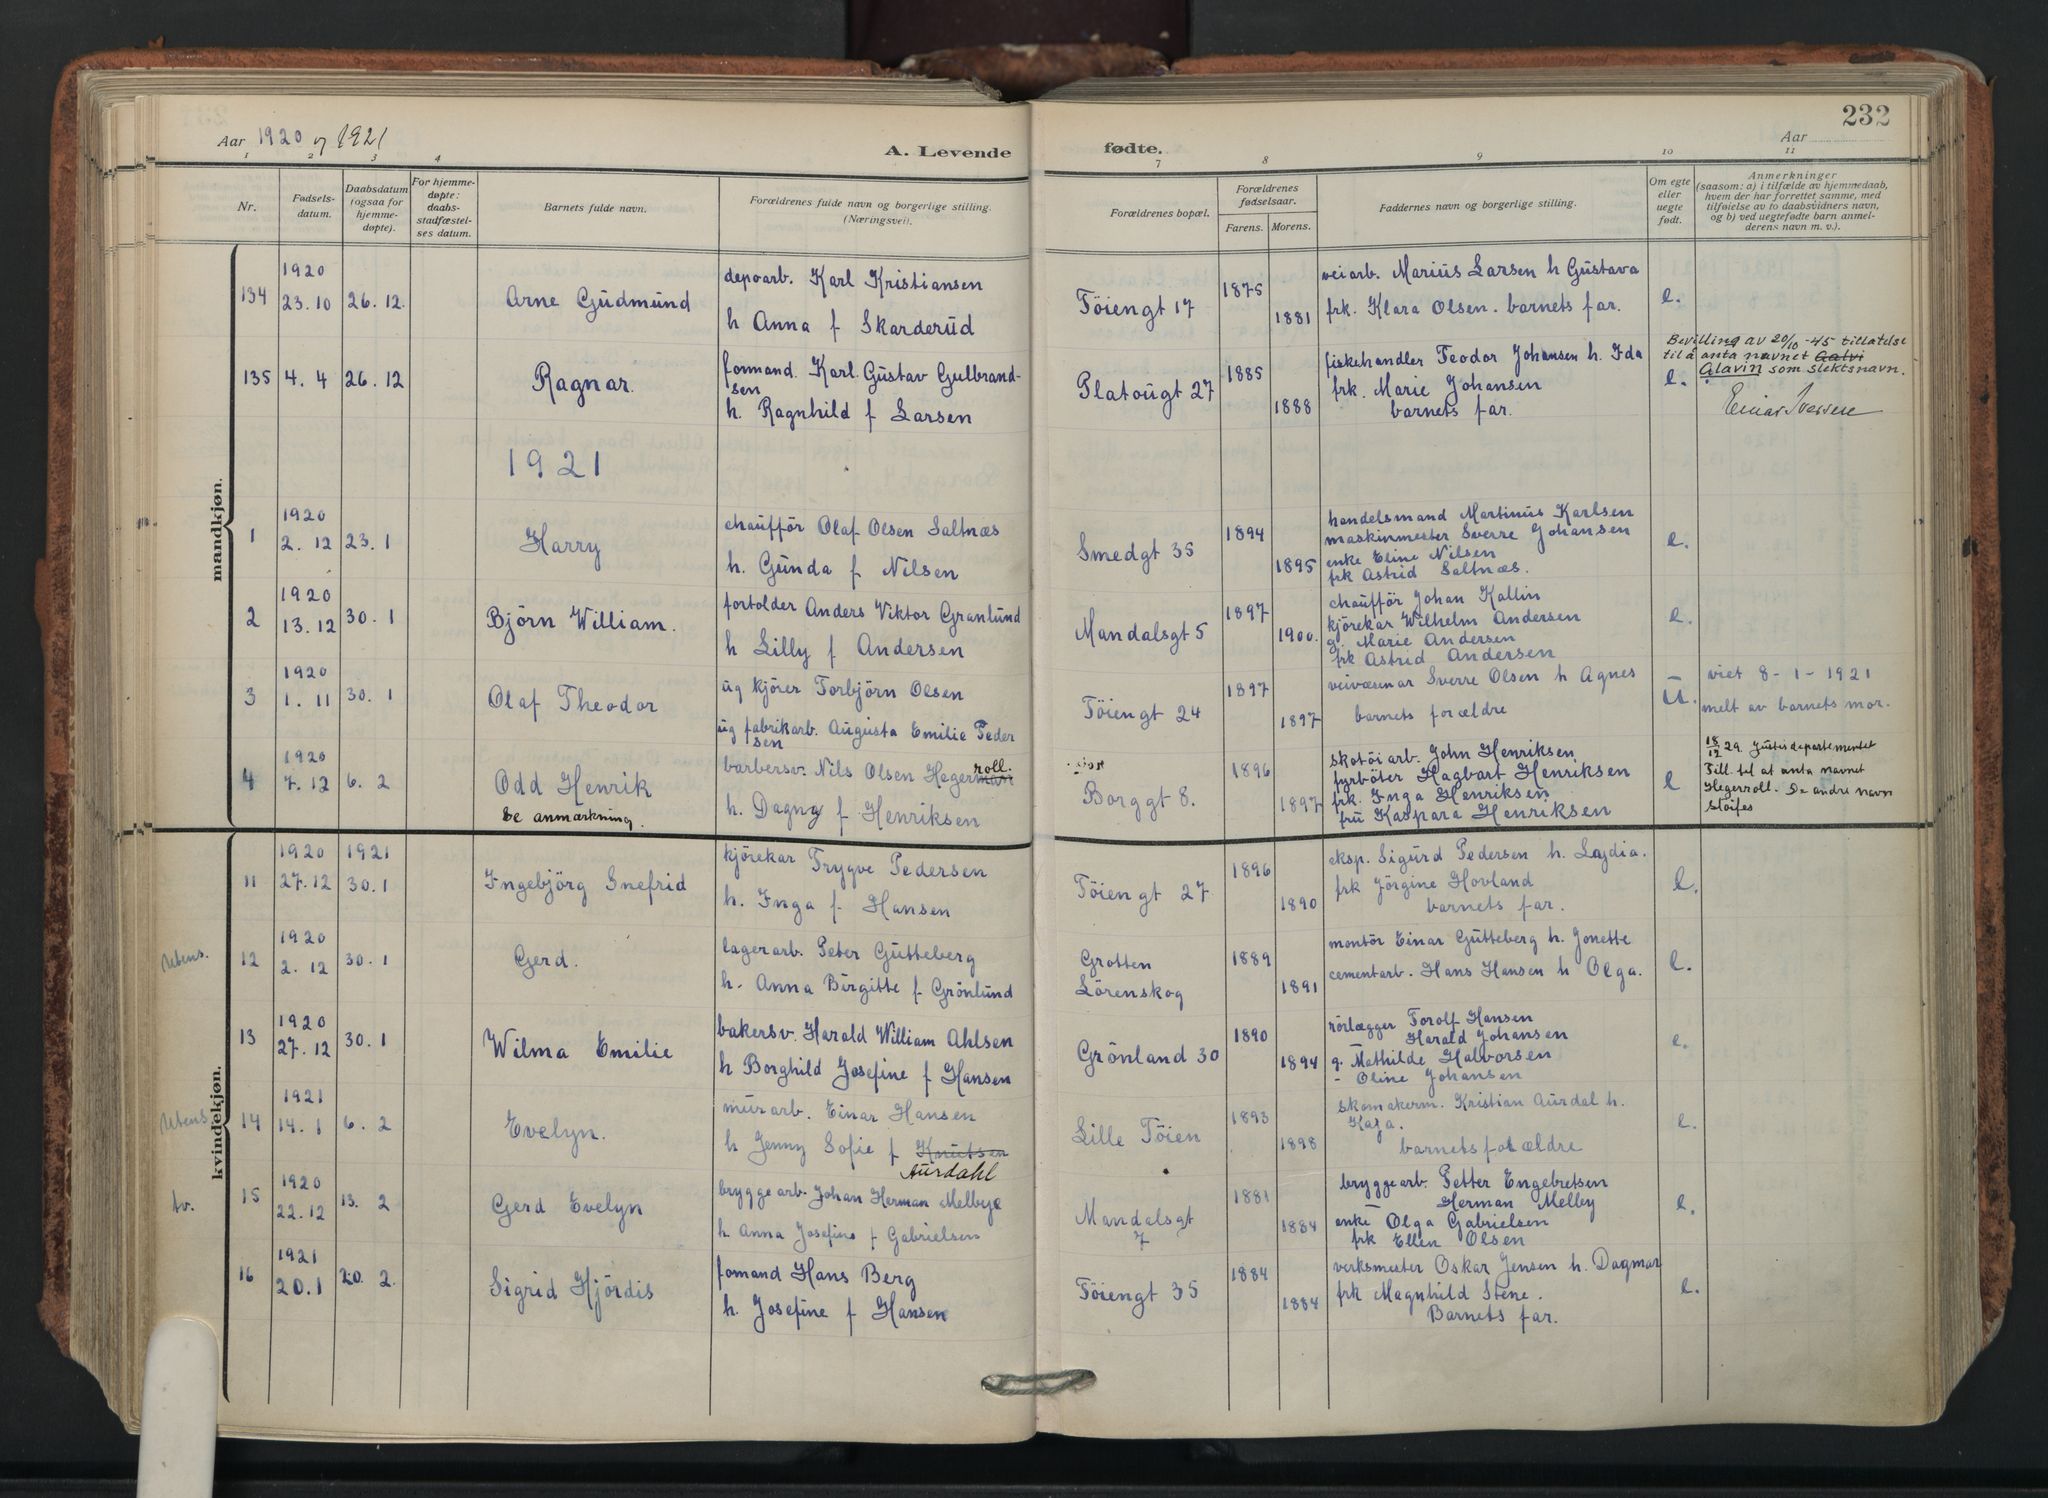 232
Aar 1920 og 1921
A. Levende
fødte.
Aar
1 2 3 4 7 8 9 10 11
Nr.
Fødsels-
datum.
Daabsdatum
(ogsaa for
hjemme-
døpte).
For hjemme-
døpte:
daabs-
stadfæstel-
ses datum.
Barnets fulde navn.
Forældrenes fulde navn og borgerlige stilling.
(Næringsvei).
Forældrenes bopæl.
Forældrenes
fødselsaar.
Farens. Morens.
Faddernes navn og borgerlige stilling.
Om egte
eller
uegte
født.
Anmerkninger
(saasom: a) i tilfælde av hjemmedaab,
hvem der har forrettet samme, med
tilføielse av to daabsvidners navn,
og b) ved uegtefødte barn anmel-
derens navn m. v.).
mandkjøn.
134
1920
23.10
26.12
Arne Gudmund
depoarb. Karl Kristiansen
h Anna f Skarderud
Töiengt 17
1875
1881
veiarb. Marius Larsen h Gustava
frk. Klara Olsen. barnets far.
e.
135
4.4
26.12
Ragnar.
formand. Karl Gustav Gulbrand-
sen
h. Ragnhild f Larsen
Platougt 27
1885
1888
fiskehandler Teodor Johansen h. Ida
frk. Marie Johansen
barnets far.
e.
Bevilling av 20/10 -45 tillatelse
til å anta navnet Galvi
Alavin som slektsnavn.
Einar Iversen
1921
1
1920
2.12
23.1
Harry
chaufför Olaf Olsen Saltnæs
h. Gunda f Nilsen
Smedgt 35
1894
1895
handelsmand Martinus Karlsen
maskinmester Sverre Johansen
enke Eline Nilsen
frk Astrid Saltnæs.
e.
2
1920
13.12
30.1
Björn William.
fortolder Anders Viktor Granlund
h Lilly f Andersen
Mandalsgt 5
1897
1900.
chaufför Johan Kallin
kjörekar Wilhelm Andersen
g. Marie Andersen
frk Astrid Andersen
e.
3
1920
1.11
30.1
Olaf Theodor
ug kjörer Torbjörn Olsen
ug fabrikarb. Augusta Emilie Peder
sen
Töiengt 24
1897
1897
veivæsenar Sverre Olsen h Agnes
barnets forældre
U.
viet 8-1-1921
melt av barnets mor.
4
1920
7.12
6.2
Odd Henrik
Se anmærkning.
barbersv. Nils Olsen Hegermann
roll.
h. Dagny f Henriksen
Borggt 8.
1896
1897
skotöiarb. John Henriksen
fyrböter Hagbart Henriksen
frk. Inga Henriksen
fru Kaspara Henriksen
e
18/12 29. Justisdepartementet
Till. til at anta navnet
Hegerroll. De andre navn
slöifes
kvindekjøn.
11
1920
27.12
1921
30.1
Ingebjörg Snefrid
kjörekar Trygve Pedersen
h. Inga f Hansen
Töiengt 27.
1896
1890
eksp. Sigurd Pedersen h. Lydia.
frk Jörgine Hovland
barnets far.
e.
Utens.
12
1920
2.12
30.1
Gerd.
lagerarb. Peter Gutteberg
h. Anna Birgitte f Grönlund
Grotten
Lörenskog
1889
1891
montör Einar Gutteberg h. Jonette
cementarb. Hans Hansen h Olga.
e.
13
1920
27.12
30.1
Wilma Emilie
bakersv. Harald William Ahlsen
h Borghild Josefine f Hansen
Grönland 30
1890
1894
rörlægger Torolf Hansen
Harald Johansen
g. Mathilde Halvorsen
- Oline Johansen
e.
Utens.
14
1921
14.1
6.2
Evelyn.
murarb. Einar Hansen
h Jenny Sofie f Knutsen
Aurdahl
Lille Töien
1893
1898
skomakerm. Kristian Aurdal h.
Kaja.
barnets forældre
e.
Av.
15
1920
22.12
13.2
Gerd Evelyn
bryggearb. Johan Herman Melbye
h. Anna Josefine f Gabrielsen
Mandalsgt
7
1881
1884
bryggearb. Petter Engebretsen
- Herman Melby
enke Olga Gabrielsen
frk Ellen Olsen
e.
16
1921
20.1
20.2
Sigrid Hjördis
fomand Hans Berg
h. Josefine f Hansen
Töiengt 35
1884
1884
verksmester Oskar Jensen h. Dagmar
frk Magnhild Stene.
Barnets far.
e.